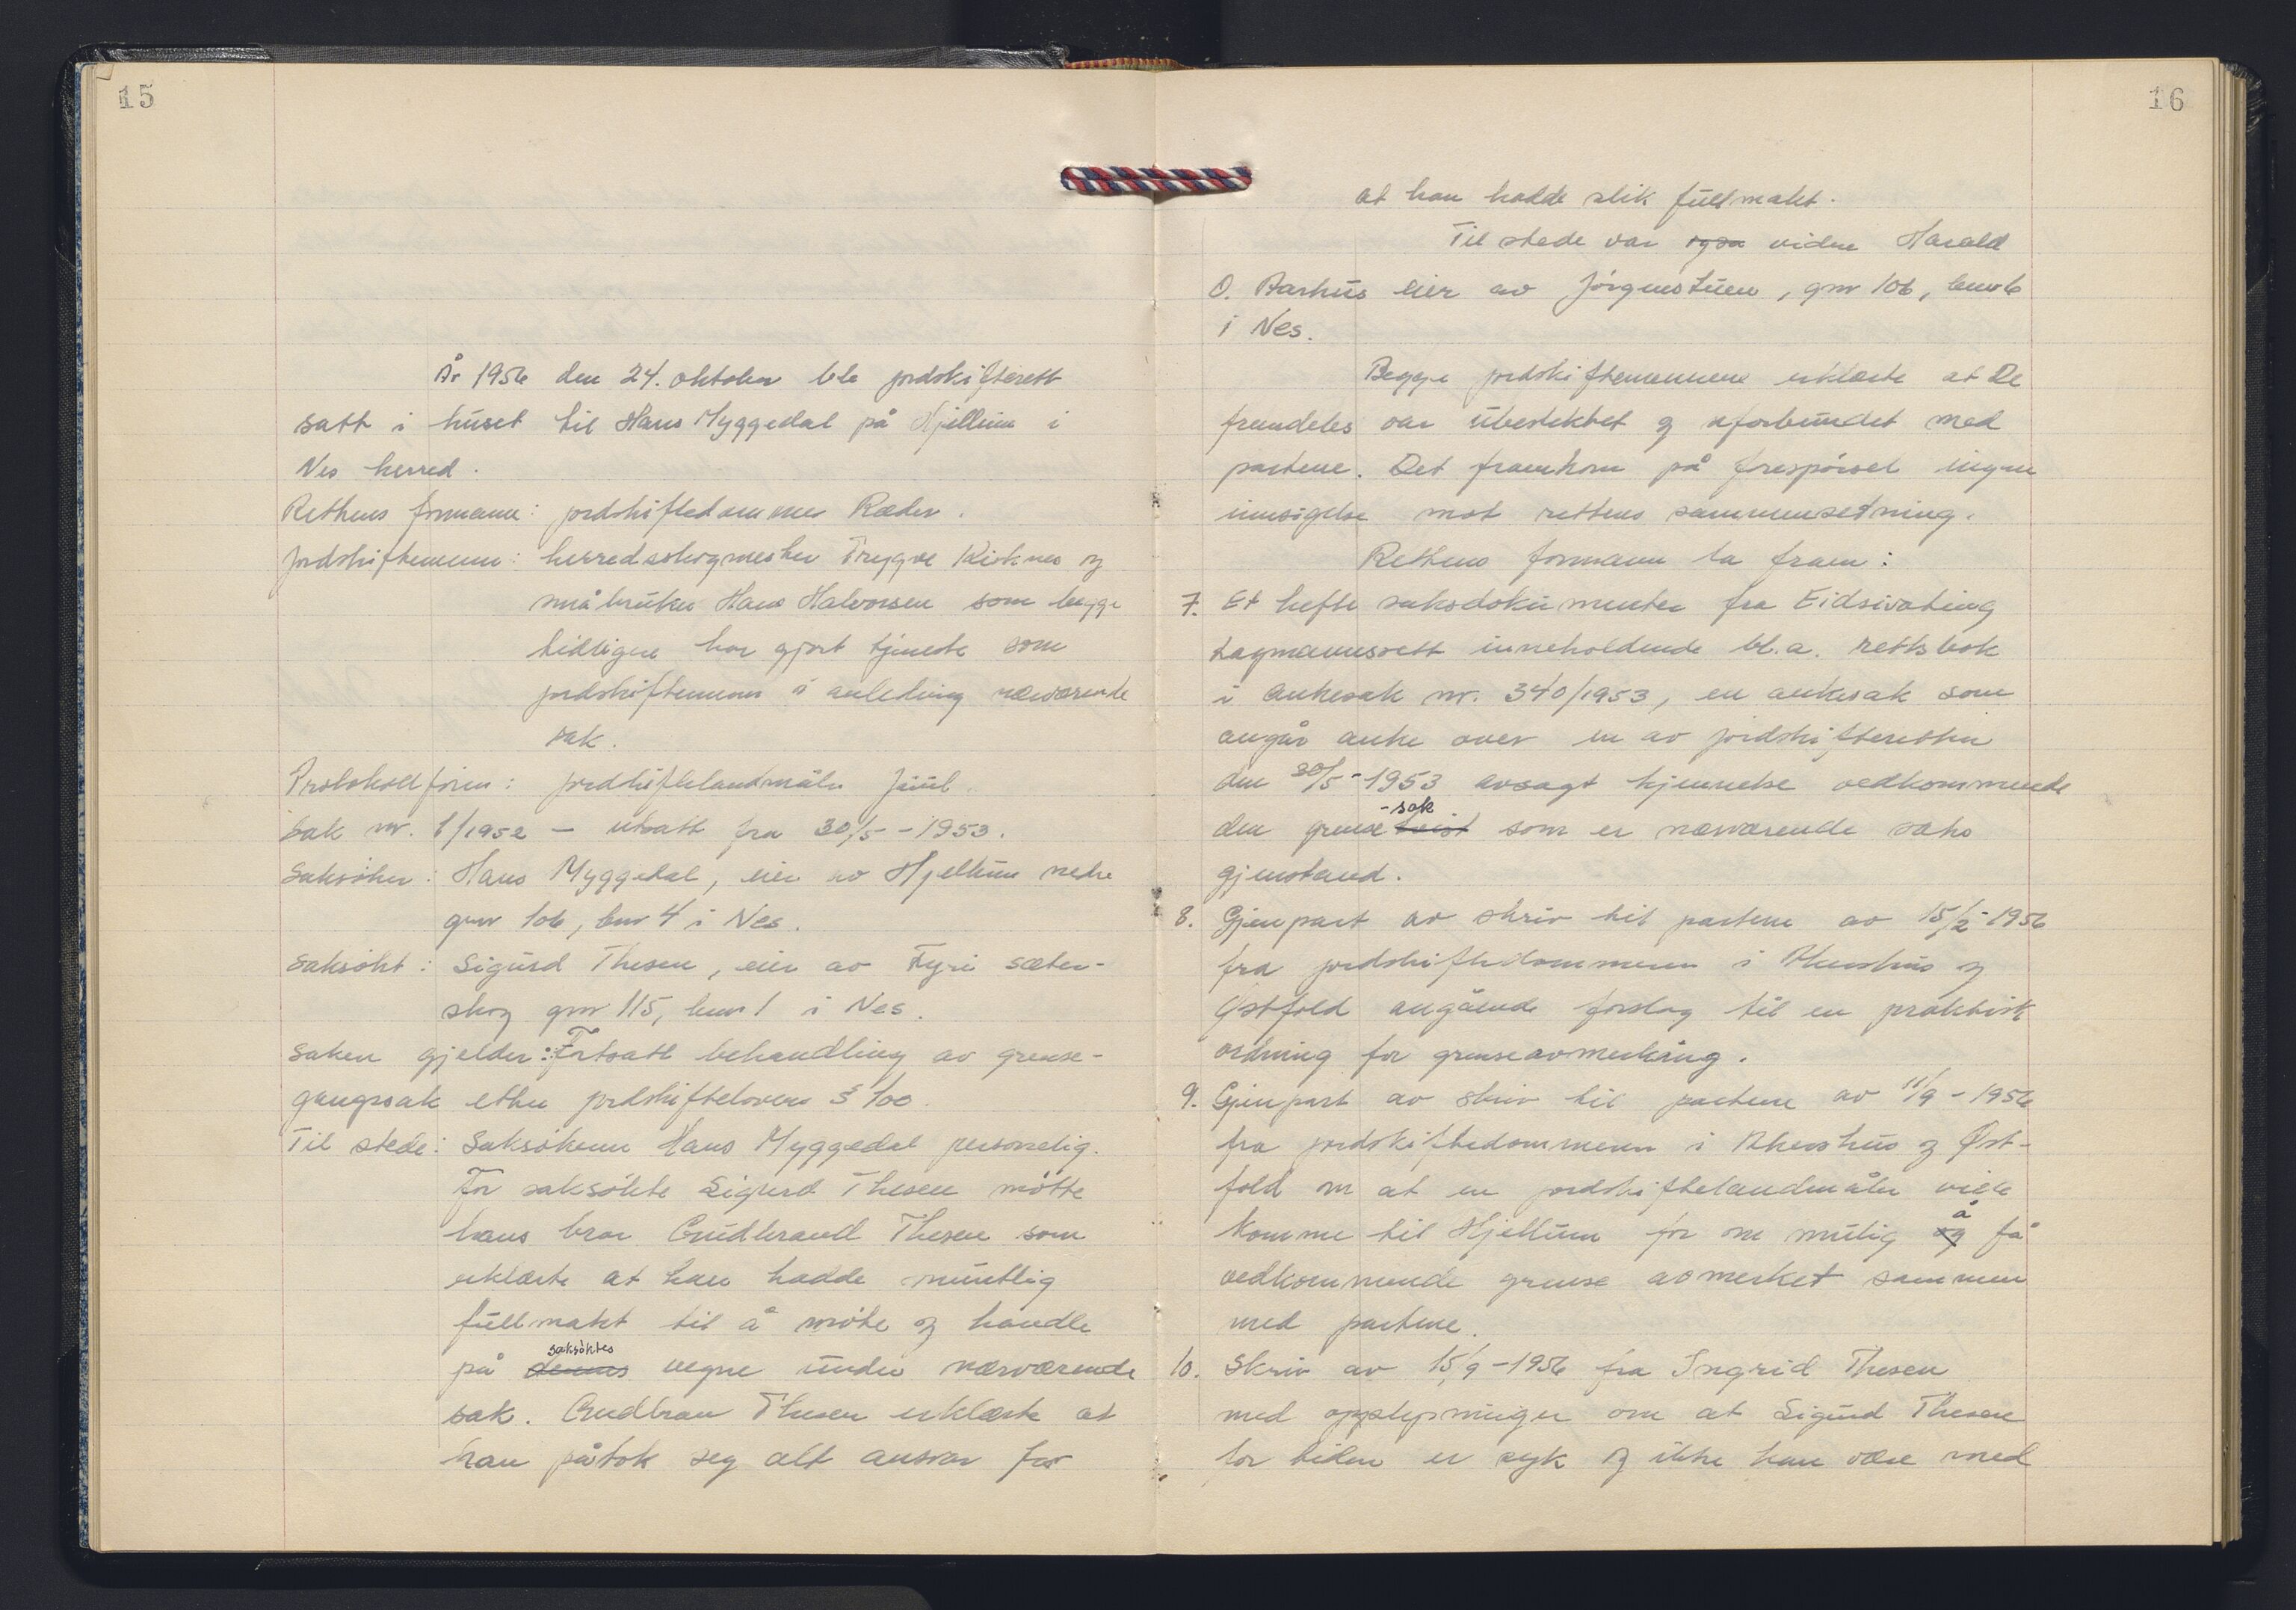 15
År 1956 den 24. oktober ble jordskifterett
satt i huset til Hans Myggedal på Hjellum i
Nes herred.
Rettens formann: jordskiftedommer Ræder.
Jordskiftemenn: herredsskogmester Trygve Kisknes og
småbruker Hans Halvorsen som begge
tidligere har gjort tjeneste som
jordskiftemenn i anledning nærværende
sak.
Protokollfører: jordskiftelandmåler Juul.
Sak nr. 1/1952 – utsatt fra 30/5-1953.
Saksøker: Hans Myggedal, eier av Hjellum nedre
gnr 106, bnr 4 i Nes.
Saksøkt: Sigurd Thesen, eier av Fyri sæter-
skog gnr 115, bnr 1 i Nes.
Saken gjelder: Fortsatt behandling av grense-
gangssak etter jordskiftelovens § 100.
Til stede: Saksøkeren Hans Myggedal personlig.
For saksøkte Sigurd Thesen møtte
hans bror Gudbrand Thesen som
erklærte at han hadde muntlig
fullmakt til å møte og handle
saksøktes
på dennes vegne under nærværende
sak. Gudbran Thesen erklærte at
han påtok seg alt ansvar for
16
at han hadde slik fullmakt.
Til stede var også vidne Harald
O. Aarhus eier av Jørgenstuen, gnr 106, bnr 6
i Nes.
Begge jordskiftemennene erklærte at de
fremdeles var ubeslektet og uforbundet med
partene. Det framkom på forespørsel ingen
innsigelse mot rettens sammensetning.
Rettens formann la fram:
7. Et hefte saksdokumenter fra Eidsivating
Lagmannsrett inneholdende bl.a. rettsbok
i ankesak nr. 340/1953, en ankesak som
angår anke over en av jordskifteretten
den 30/5-1953 avsagt kjennelse vedkommende
-sak
den grensetvist som er nærværende saks
gjenstand.
8. Gjenpart av skriv til partene av 15/2-1956
fra jordskiftedommeren i Akershus og
Østfold angående forslag til en praktisk
ordning for grenseavmerking.
9. Gjenpart av skriv til partene av 11/9-1956
fra jordskiftedommeren i Akershus og Øst-
fold om at en jordskiftelandmåler ville
å
komme til Hjellum for om mulig og få
vedkommende grense avmerket sammen
med partene.
10. Skriv av 15/9-1956 fra Ingrid Thesen
med opplysninger om at Sigurd Thesen
for tiden er syk og ikke kan være med